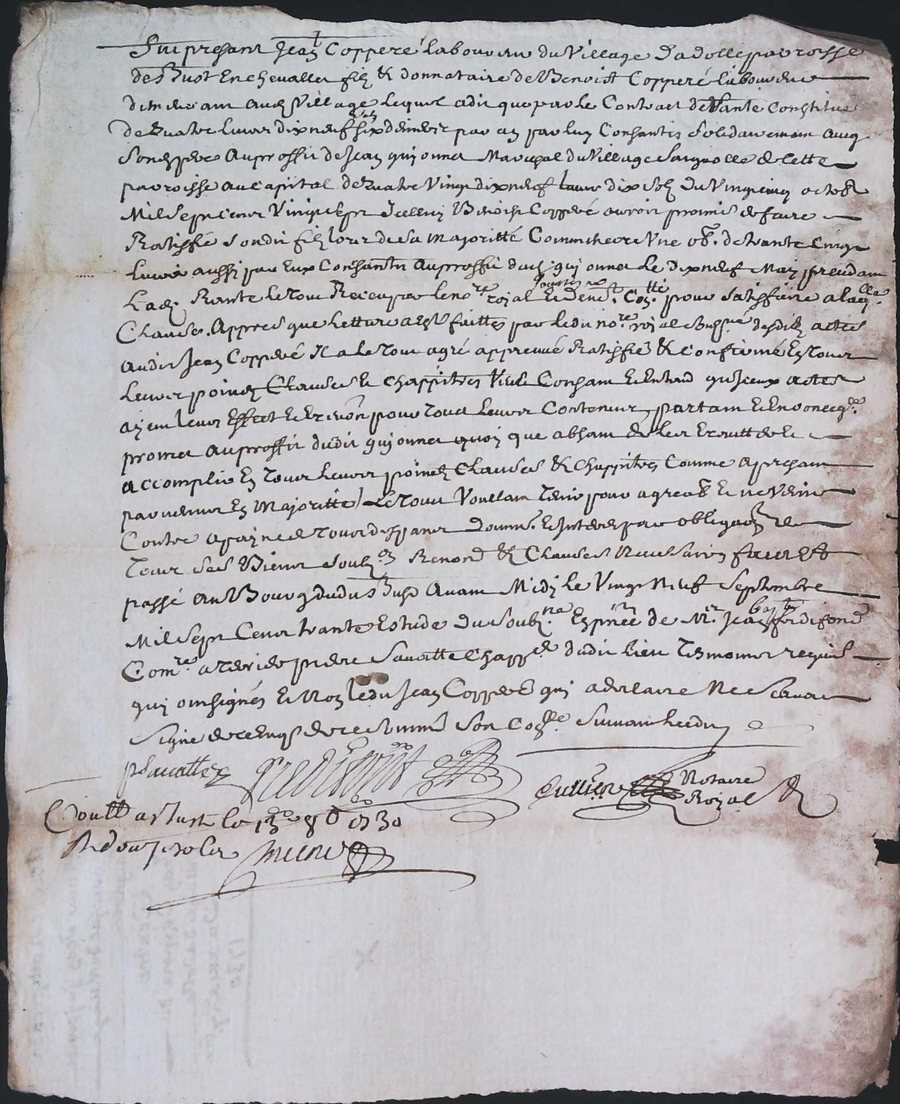 Fut presant Jean Copperé laboureur du Village Dadolle paroisse
de St Just En chevallet filz & donnataire de Benoist Copperé laboureur
demeurant aud. Village lequel a dit que par le Contract de Rante Constitué
de quatre livres dix neuf solz six deniers par an par luy Consantis solidairement avecq
Son dt pere Au proffit de Jean quionnet Marechal du Village de cette
paroisse au Capital de quatre Vingt dix neuf livres dix solz du Vingt cinq octobre
Mil Sept Cent Vingt Sept Icelluy Benoist Copperé auroit promis de faire
Ratiffié Son dit filz lors de sa Majoritté Comm' encore Une obon. de trante Cinq
livres aussi par Eux Consantie au proffit dud. quionnet le dix neuf May precedant
Lad. Rante le tout Receu par le nore. royal soussigné pour satisfaire a lad.lle
Clause Appres que lecture a esté faitte par led. nore. royal Soussigné desd. actes
audit Jean Copperé Il a le tout agréé approuvé Ratiffié & Confirmé En tous
Leurs points Clauses Et Chappittres Veut Consant Et Entend qu'Iceux actes
ayent leurs Effect & Execution pour tout leur Contenu, partant
promet au proffit dudit quionnet quoy que absant de les Executter &
accomplir En tous leurs points Clauses & Chappittres Comme a presant
parvenu En Majoritté, Le tout Voullant Tenir pour agreable Et ne Venir
Contre a payne de tous despans domm. & Interests par obligaon. de
Tous ses Biens Soubz. Renond. & Clauses Necessaires fait Et
passé au Bourg dud. St Just Avant Midy le Vingt Neuf Septembre
Mil Sept Cent trante Estude du Soubz.né En pnce de Mre. Jean
Comre. a Terrier pierre Savatte Chapp. dudit lieu Temoins requis
qui ont signés Et Non led. Jean Copperé qui a declairé Ne Scavoir
Signe de ce Enquis & de ce Sommé Son Coste. Suivant
pSavatte Notaire
Royal
Controllé a St Just le 13e 8bre 1730
R douze solz